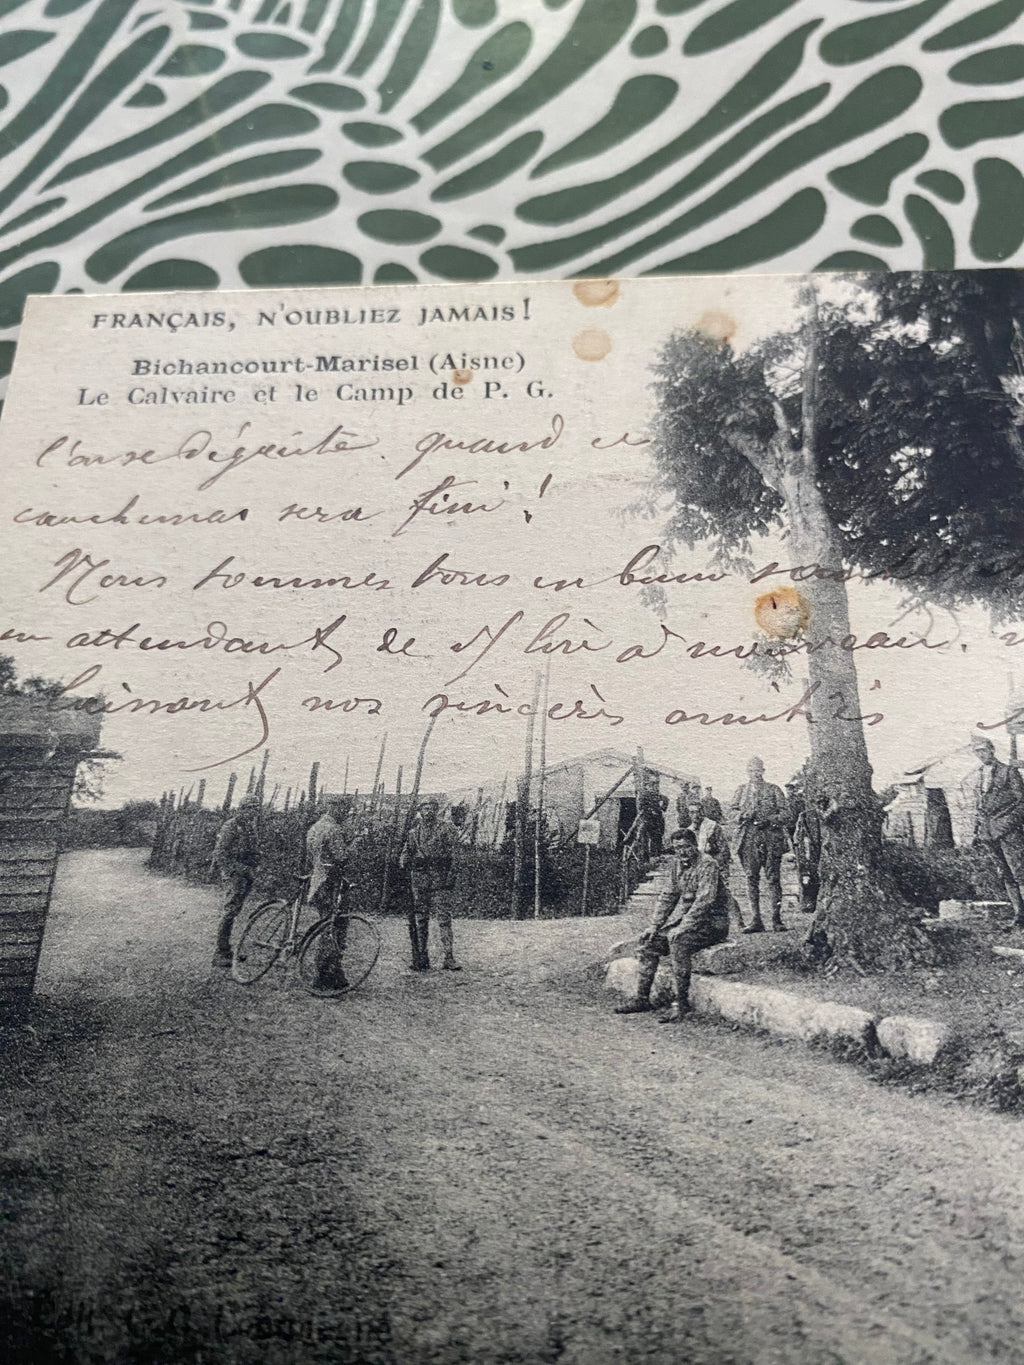 FRANÇAIS, N'OUBLIEZ JAMAIS!
Bichancourt-Marisel (Aisne)
Le Calvaire et le Camp de P. G.
quand ce
cauchemar sera fini !
Nous sommes tous en bonne
en attendant de lire à nouveau.
nos sincères amitiés
Edit. C.G.